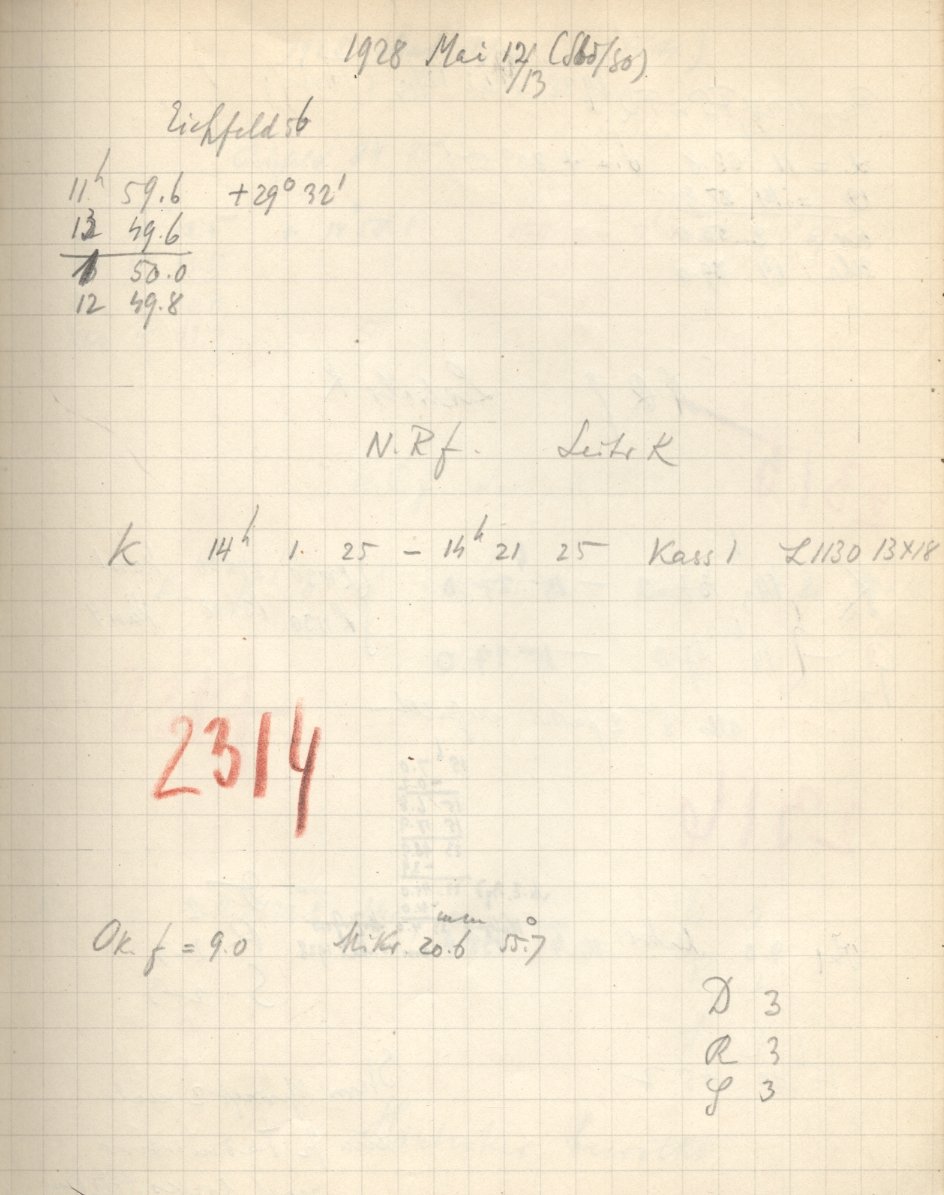 1928 Mai 12/13 (Sbd/So)
Eichfeld 56
11h 59.6 +29° 32'
13 49.6
1 50.0
12 49.8
N. R f. Leitr K
K 14h 1 25 – 14h 21 25 Kass 1 L1130 13×18
2314
Ok. f = 9.0 Mikr. 20.6 mm 55.7°
D 3
R 3